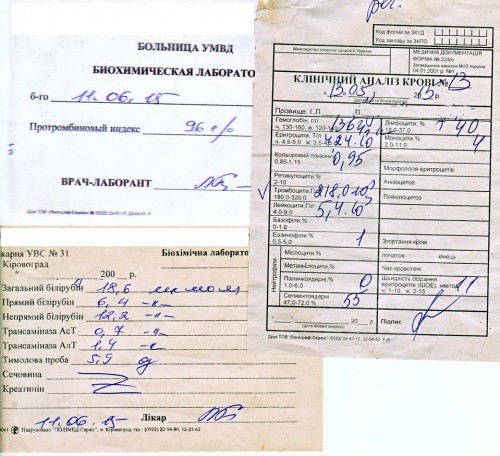 рег.
Код форми за ЗКУД
Код закладу за ЗКПО
Міністерство охорони здоров'я України
МЕДИЧНА ДОКУМЕНТАЦІЯ
ФОРМА № 224/о
Затверджена наказом МОЗ України
04.01.2001 р. №1
КЛІНІЧНИЙ АНАЛІЗ КРОВІ № 13
13.05. 2015 р.
Прізвище, І.,П.
Гемоглобін, г/л
ч. 130-160, ж. 120-1
Еритроцити, Т/л
ч. 4.5-5.0
Кольоровий показник 0,95
0.85-1.15
Ретикулоцити %
2-10
Тромбоцити, Г/л 218,0
180.0-320.0
Лейкоцити, Г/л 5,4
4.0-9.0
Базофіли %
0-1.0
Еозинофіли % 1
0.5-5.0
Нейтрофіли
Мієлоцити, %
Метамієлоцити, %
Паличкоядерні, % 0
1.0-6.0
Сегментоядерні 55
47.0-72.0 %
Лімфоцити, % 40
-37.0
Моноцити, % 4
2.0-11.0
Морфологія еритроцитів
Анізоцитоз
Пойкілоцитоз
Згортання крові
Час кровотечі
Швидкість осідання
еритроцитів (ШОЕ), мм/год 11
ч. 1-10, ж. 2-15
20 р. Підпис
БОЛЬНИЦА УМВД
БИОХИМИЧЕСКАЯ ЛАБОРАТО
6-го 11.06.15
Протромбиновый индекс 96 %
ВРАЧ-ЛАБОРАНТ
карня УВС № 31
Біохімічна лаборато
Кіровоград
200 р.
Загальний білірубін 18,6 мкмоль
Прямий білірубін 6,4 -"-
Непрямий білірубін 12,2 -"-
Трансаміназа АсТ 0,7 -"-
Трансаміназа АлТ 1,4
Тимолова проба 5,9
Сечовина
Креатинін
11.06.15 Лікар
Надруковано "ПОЛІМЕД-Сервіс", м. Кіровоград, тел.: (0522) 22-54-80, 32-25-62